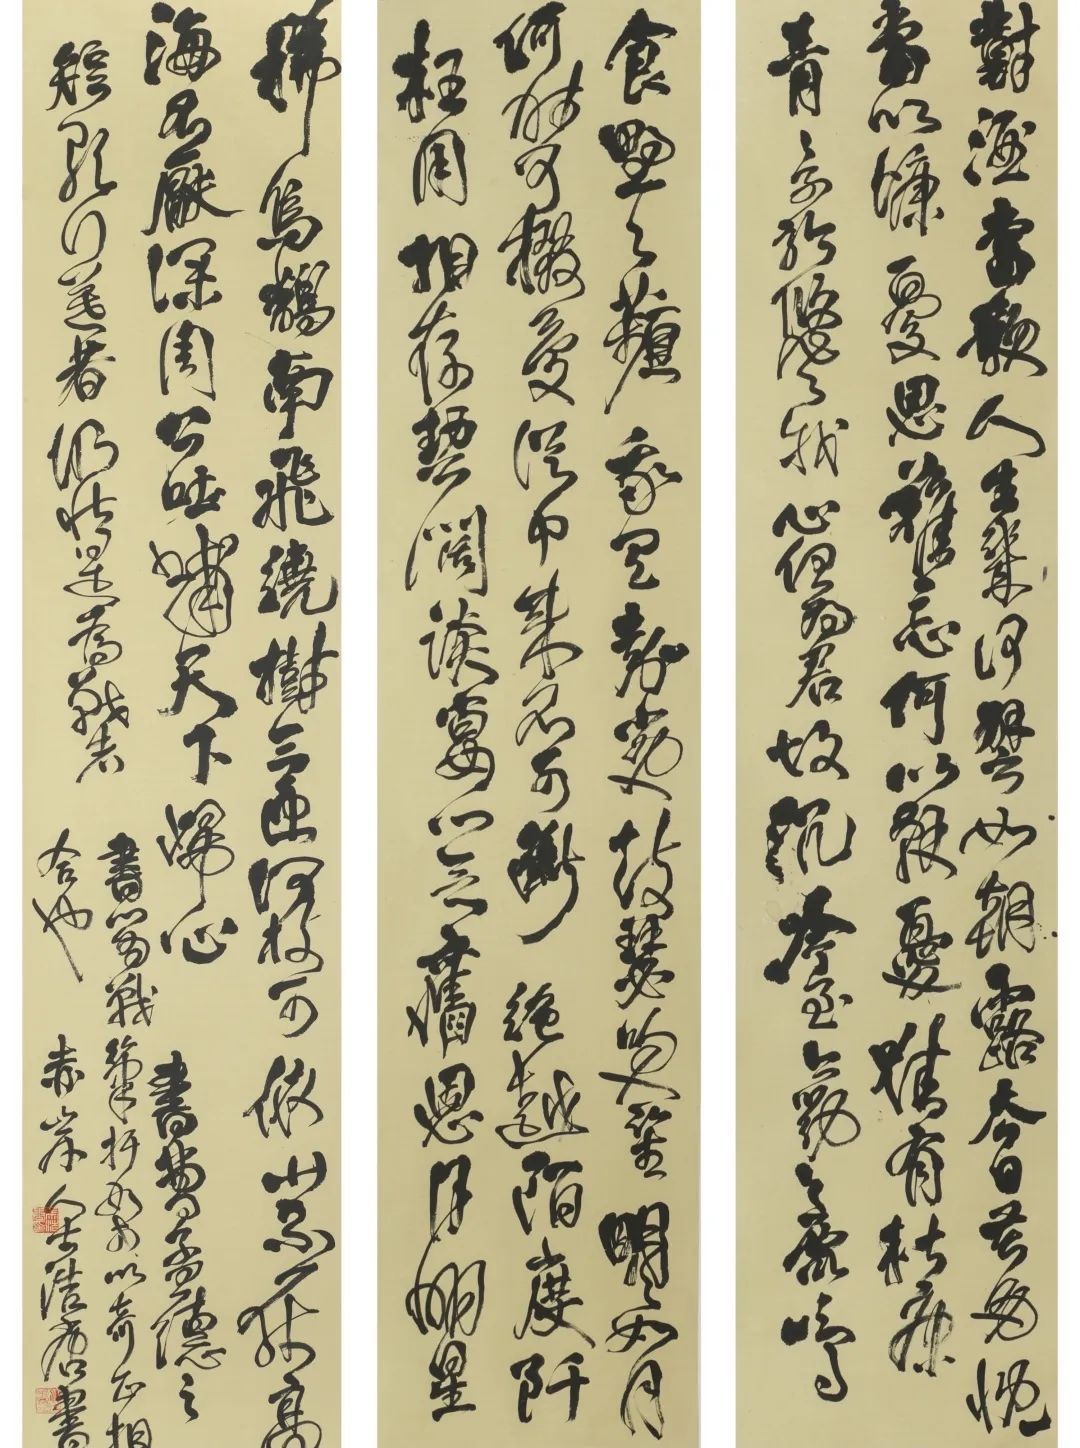 對酒當歌人生幾何譬如朝露去日苦多慨
當以慷憂思難忘何以解憂惟有杜康
青青子衿悠悠我心但為君故沉吟至今呦呦鹿鳴
食野之蘋我有嘉賓鼓瑟吹笙明明如月
何時可掇憂從中來不可斷絕越陌度阡
枉用相存契闊談讌心念舊恩月明星
稀烏鵲南飛繞樹三匝何枝可依山不厭高
海不厭深周公吐哺天下歸心
書曹孟德之
短歌行
書以奇正相
合也
赤岸